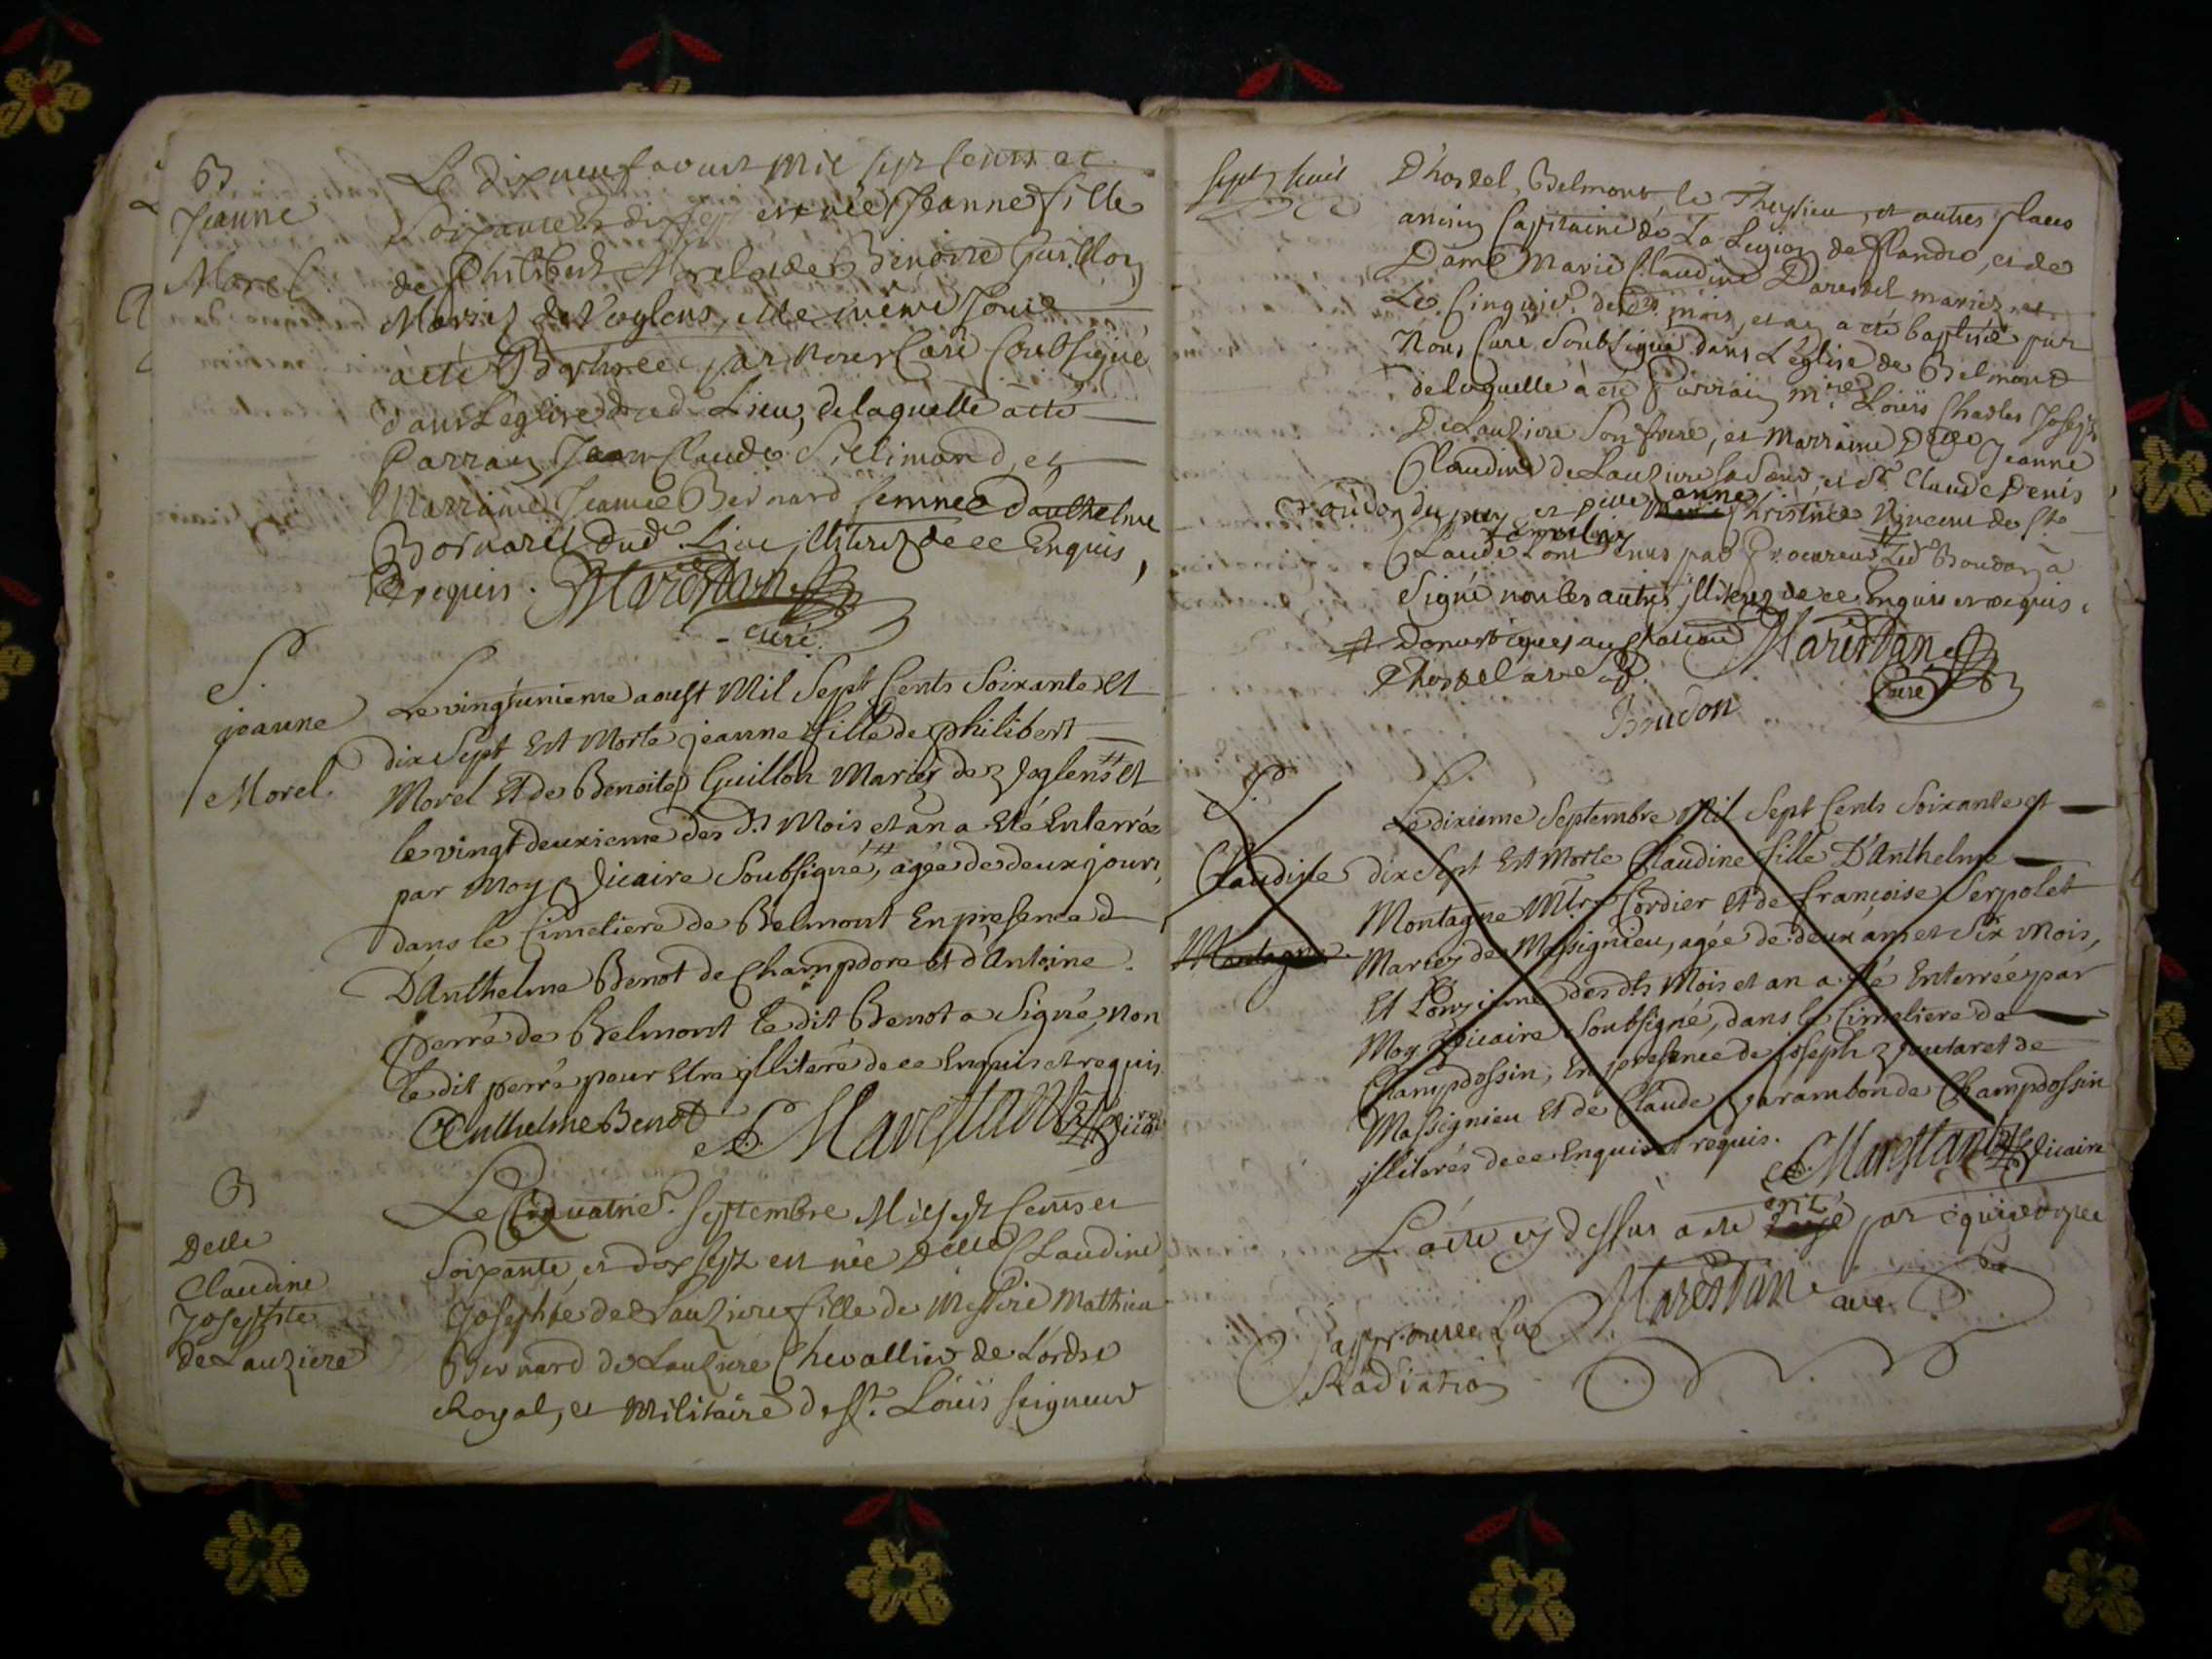 B
Jeanne
Morel
Le dixneuf aoust mil sept cents et
soixante et dix sept est née Jeanne fille
de Philibert Morel et de Benoite Guillon
Mariez de Voglens, et le même Jour
a été Baptisée par nous Curé Soubsigné
dans Leglise dud. Lieu, de laquelle a été
Parrain Jean Claude Sillimand, et
Marraine Jeanne Bernard femme d'anthelme
Bornarel dud. Lieu illiterez de ce Enquis,
et requis. Marestan
curé
S.
jeanne
Morel.
Le vingt unieme aoust Mil Sept Cents Soixante et
dix Sept Est Morte jeanne fille de philibert
Morel Et de Benoite Guillon Mariez de Voglens et
le vingt deuxieme des dts Mois et an a Eté Enterrée
par Moy Vicaire Soubsigné, # agée de deux jours,
dans le Cimetiere de Belmont En presence d
D'Anthelme Benot de Champdore et d'Antoine
perré de Belmont le dit Benot a Signé, non
le dit perré pour Etre illiteré de ce Enquis et requis.
Anthelme Benot Marestan Vicre
B
Delle
Claudine
Josephte
de Lauzière
Le quatrie. Septembre Mil sept Cents et
Soixante, et dix sept est née Delle Claudine
Josephte de Lauziere fille de Messire Mathieu
Bernard de Lauziere Chevallier de L'ordre
Royal, et Militaire de St. Louïs Seigneur
sept huit
D'hostel, Belmont, le Theysieu, et autres places
ancien Capitaine de La Legion de flandre, et de
Dame Marie Claudine Darestel mariez, et
Le Cinquie. desd. mois, et an a été baptisée par
Nous Curé Soubsigné dans L'église de Belmont
de laquelle à été Parrain mre. Louïs Charles Joseph
De Lauziere Son frere, et Marraine Delle Jeanne
Claudine de Lauziere Sa Soeur, et Sr. Claude Denis
Boudon du puy, et anne Christine Vincent de Ste
Claude tenus par Procureur # Led Boudon à
Signé non les autres illiterez de ce Enquis et requis.
# Domestiques au chateau
D'hostel Marestan
Curé
Boudon
S.
Claudine
Montagne.
Le dixieme Septembre Mil Sept Cents Soixante et
dix Sept Est Morte Claudine fille D'Anthelme
Montagne Mtre Cordier Et de françoise Serpolet
Mariez de Massignieu, agée de deux ans et Six Mois,
Et L'onzieme des dts Mois et an a été Enterrée par
Moy Vicaire Soubsigné, dans le Cimetiere de
Champdossin, En presence de joseph Joutaret de
Massignieu Et de Claude Varambon de Champdossin
illiterés de ce Enquis et requis.
Marestan Vicaire
L'acte cy dessus a été par équivoque
Marestan curé
J'approuve La
Radiation